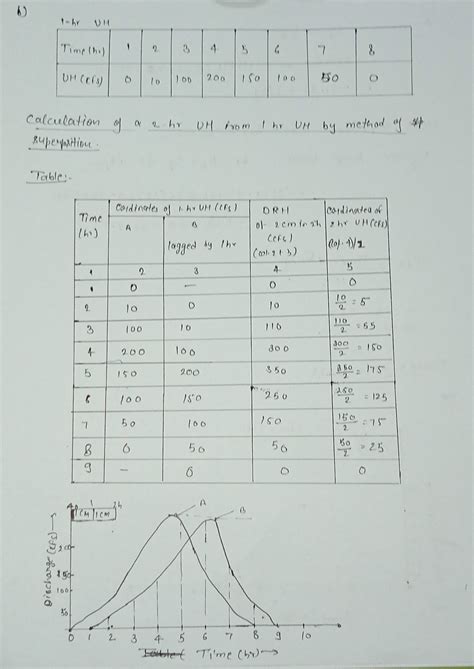 b)
1-hr UH
Time(hr) 1 2 3 4 5 6 7 8
UH(CFS) 0 10 100 200 150 100 50 0
Calculation of a 2-hr UH from 1 hr UH by method of
superposition.
Table:-
Time (hr) Cordinates of 1-hr UH (CFS) DRH of 2cm in 2h (CFS) (col. 2+3) Cordinates of 2hr UH (CFS) (col. 4)/2
A B lagged by 1hr
1 2 3 4 5
1 0 - 0 0
2 10 0 10 10/2 = 5
3 100 10 110 110/2 = 55
4 200 100 300 300/2 = 150
5 150 200 350 350/2 = 175
6 100 150 250 250/2 = 125
7 50 100 150 150/2 = 75
8 0 50 50 50/2 = 25
9 - 0 0 0
A
B
1CM 1CM
Discharge (CFS) →
200
150
100
50
0 1 2 3 4 5 6 7 8 9 10
Time (hr) →